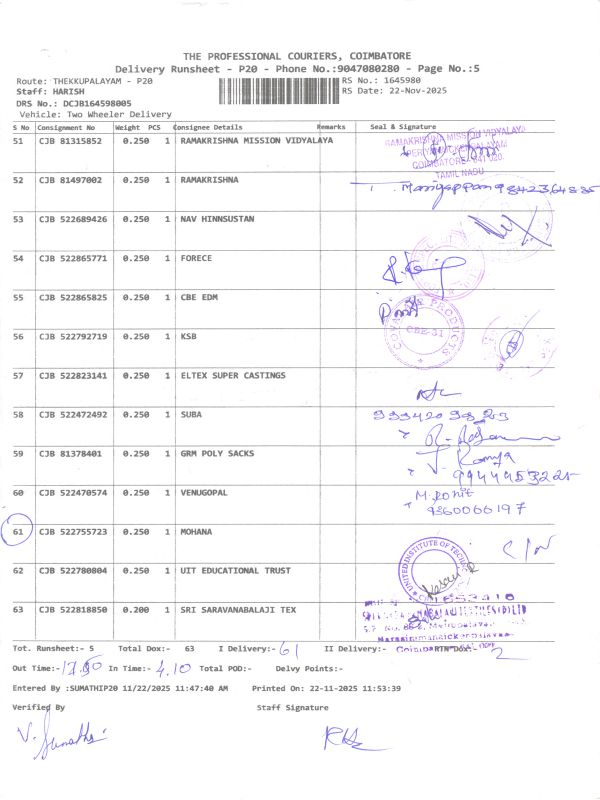 THE PROFESSIONAL COURIERS, COIMBATORE
Delivery Runsheet - P20 - Phone No.:9047080280 - Page No.:5
Route: THEKKUPALAYAM - P20 RS No.: 1645980
Staff: HARISH RS Date: 22-Nov-2025
DRS No.: DCJB164598005
Vehicle: Two Wheeler Delivery
S No Consignment No Weight PCS Consignee Details Remarks Seal & Signature
51 CJB 81315852 0.250 1 RAMAKRISHNA MISSION VIDYALAYA RAMAKRISHNA MISSION VIDYALAYA
COIMBATORE - 641 020.
TAMIL NADU
52 CJB 81497002 0.250 1 RAMAKRISHNA T. Maniyappan 9842364835
53 CJB 522689426 0.250 1 NAV HINNSUSTAN
54 CJB 522865771 0.250 1 FORECE
55 CJB 522865825 0.250 1 CBE EDM
PRODUCTS
CBE-31
56 CJB 522792719 0.250 1 KSB
57 CJB 522823141 0.250 1 ELTEX SUPER CASTINGS
58 CJB 522472492 0.250 1 SUBA
59 CJB 81378401 0.250 1 GRM POLY SACKS J. Ramya
60 CJB 522470574 0.250 1 VENUGOPAL M. Rohit
9360066197
61 CJB 522755723 0.250 1 MOHANA
62 CJB 522780804 0.250 1 UIT EDUCATIONAL TRUST UNITED INSTITUTE OF TECHNOLOGY
63 CJB 522818850 0.200 1 SRI SARAVANABALAJI TEX
Tot. Runsheet:- 5 Total Dox:- 63 I Delivery:- 61 II Delivery:- RTN DOX:- 2
Out Time:- In Time:- 4.10 Total POD:- Delvy Points:-
Entered By :SUMATHIP20 11/22/2025 11:47:40 AM Printed On: 22-11-2025 11:53:39
Verified By Staff Signature
V. Sumathi